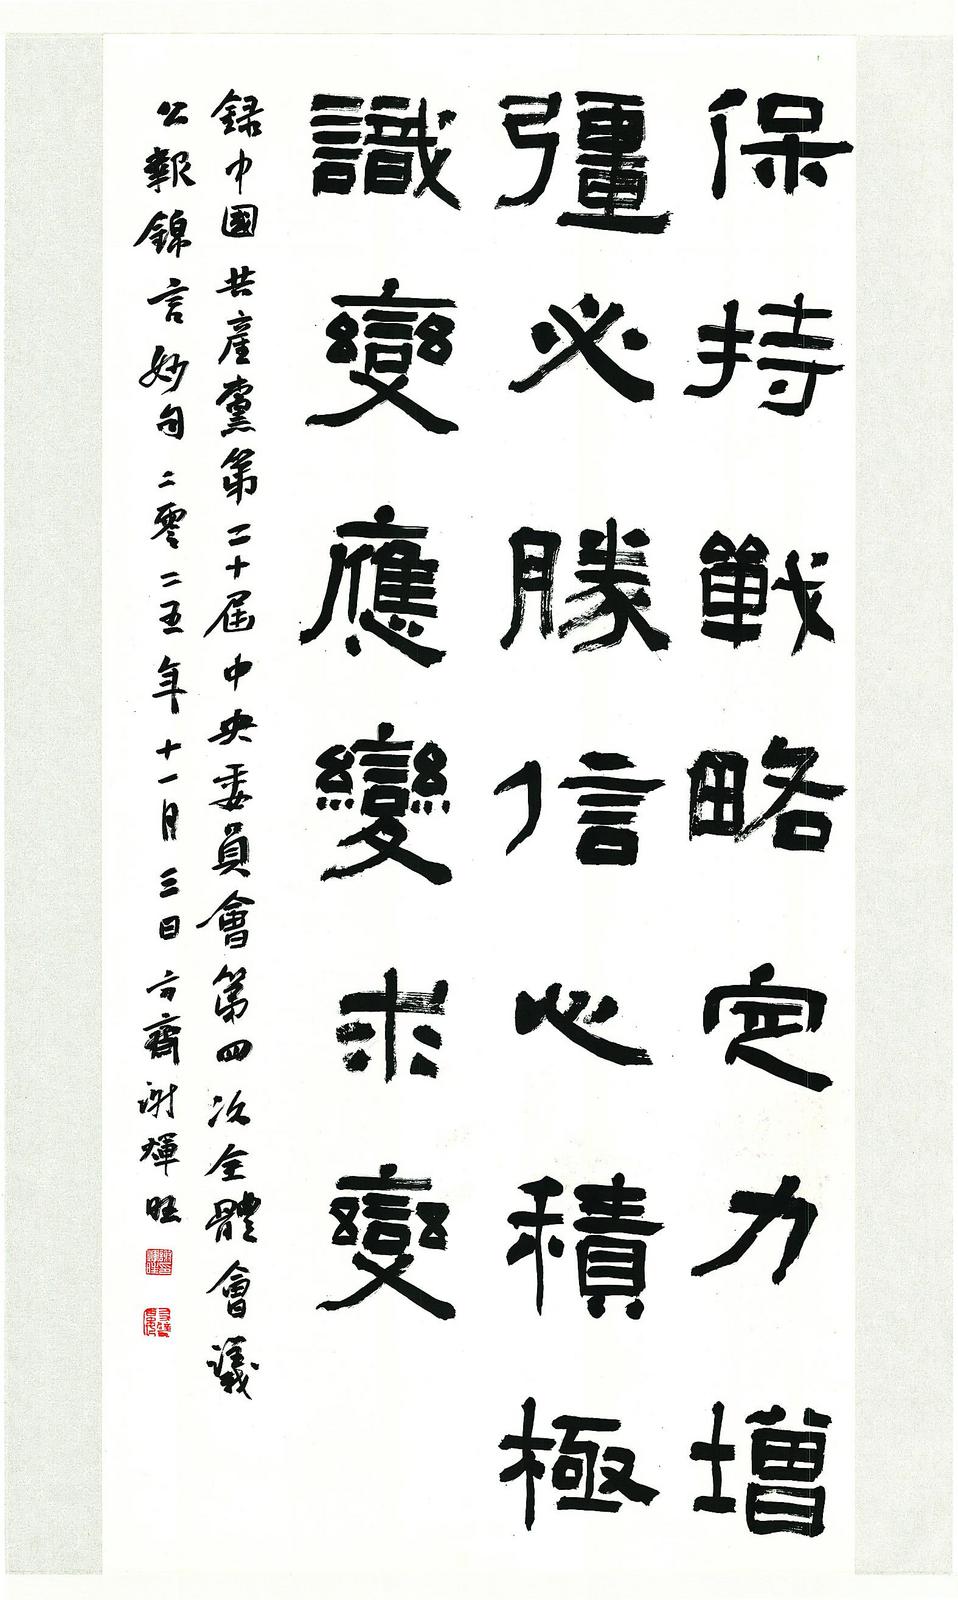 保持戰略定力增
彊必勝信心積極
識變應變求變
録中國共産黨第二十屆中央委員會第四次全體會議
公報錦言妙句二零二五年十一月三日方齋謝煇旺